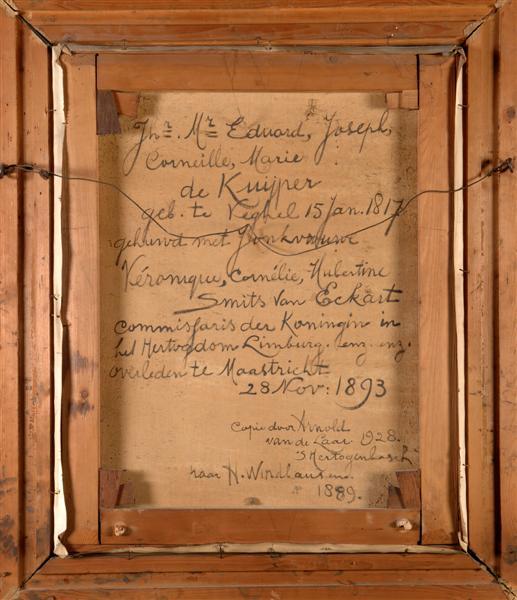 Jhr. Mr. Eduard, Joseph,
Corneille, Marie
de Kuijper
geb. te Veghel 15 Jan. 1817
gehuwd met Jonkvrouwe
Véronique, Cornélie, Hubertine
Smits van Eckart
Commissaris der Koningin in
het Hertogdom Limburg. enz. enz.
overleden te Maastricht
28 Nov: 1893
Copie door Arnold
van de Laar 1928.
's Hertogenbosch
naar H. Windhausen.
1889.